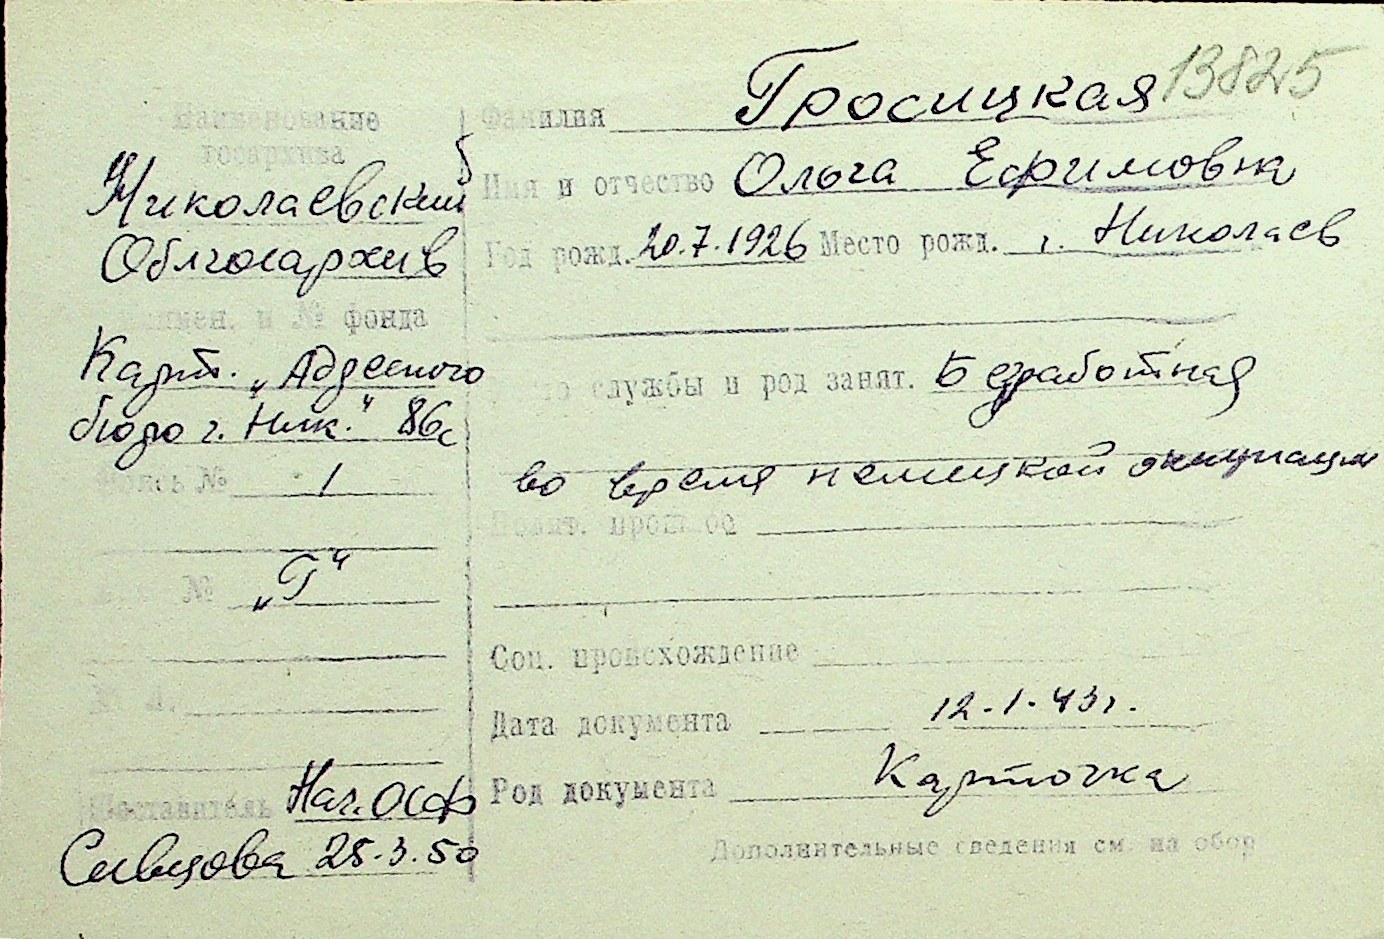 13825
Наименование
госархива
Николаевский
Облгосархив
Наимен. и № фонда
Карт. „Адресного
бюро г. Ник." 86с
Опись № 1
№ „Г"
Составитель Нач. ОСФ
Сивцова 25.3.50
Фамилия Гросицкая
Имя и отчество Ольга Ефимовна
Год рожд. 20.7.1926 Место рожд. г. Николаев
Место службы и род занят. Безработная
во время немецкой оккупации
Полит. прошлое
Соц. происхождение
Дата документа 12-1-43г.
Род документа Карточка
Дополнительные сведения см. на обор